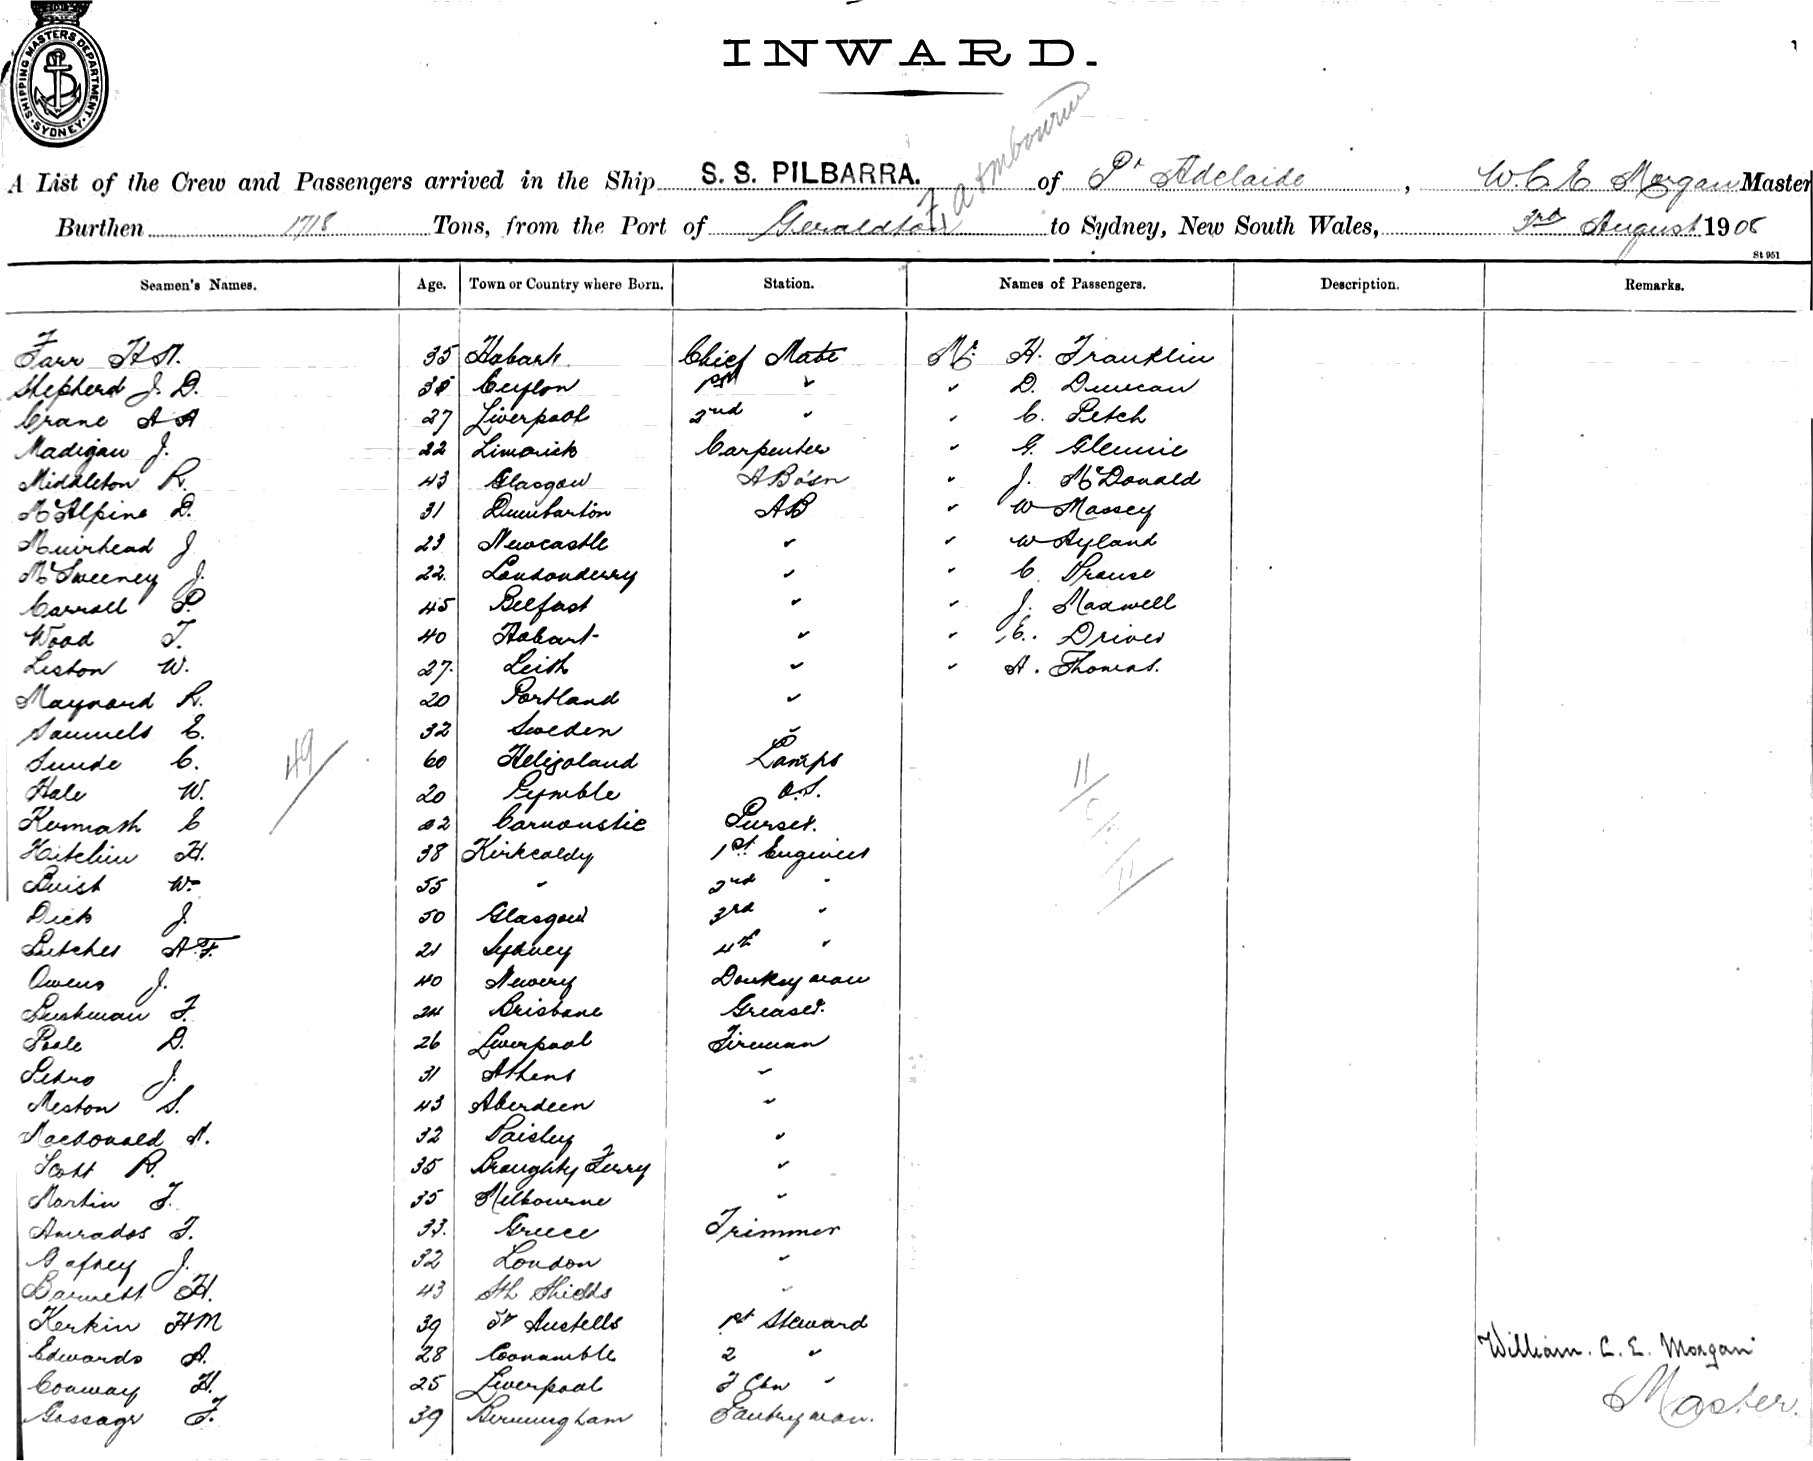 SHIPPING MASTERS DEPARTMENT SYDNEY
INWARD.
A List of the Crew and Passengers arrived in the Ship S. S. PILBARRA. of Pt Adelaide, W. C. E Morgan Master
Burthen 1718 Tons, from the Port of Geraldton to Sydney, New South Wales, 3rd August 1908
St 951
Seamen's Names. Age. Town or Country where Born. Station. Names of Passengers. Description. Remarks.
Farr 35 Hobart Chief Mate Mr. H. Franklin
Shepherd J. D. Ceylon 1st " " D. Duncan
Crane A A 27 Liverpool 2nd " " C. Petch
Madigan J. 22 Limerick Carpenter " G. Glennie
Middleton R. 43 Glasgow " J. McDonald
McAlpine D. 31 Dumbarton AB " W Massey
Muirhead J 23 Newcastle " " W Hyland
McSweeney J. 22 Londonderry " " C. Prouse
Carroll P. 45 Belfast " " J. Maxwell
Wood T. 40 Hobart " " E. Driver
Liston W. 27. Leith " " A. Thomas.
Maynard R. 20 Portland "
Samuels E. 32 Sweden "
Sunde C. 60 Heligoland Lamps
Hale W. 20 Pymble O.S.
Kermath E Carnoustie Purser.
Hitchin H. 38 Kirkcaldy 1st Engineer
Buist W. 55 " 2nd "
Dick J. 50 Glasgow 3rd "
A. F. 21 Sydney 4th "
Owens J. 40 Newry Donkeyman
Lushman F. 24 Brisbane Greaser.
Poole D. 26 Liverpool Fireman
Petro J. 31 Athens "
Meston S. 43 Aberdeen "
Macdonald N. 32 Paisley "
Scott R. 35 Broughty Ferry "
Martin F. 35 Melbourne "
33. Greece Trimmer
Gafney J. 32 London "
Barnett H. 43 Sth Shields "
Kerkin HM 39 St Austells 1st Steward
Edwards A. 28 Coonamble 2 "
Conway H. 25 Liverpool "
Gossage F. 39 Birmingham Pantryman.
49
11
11
William. C. E. Morgan
Master.